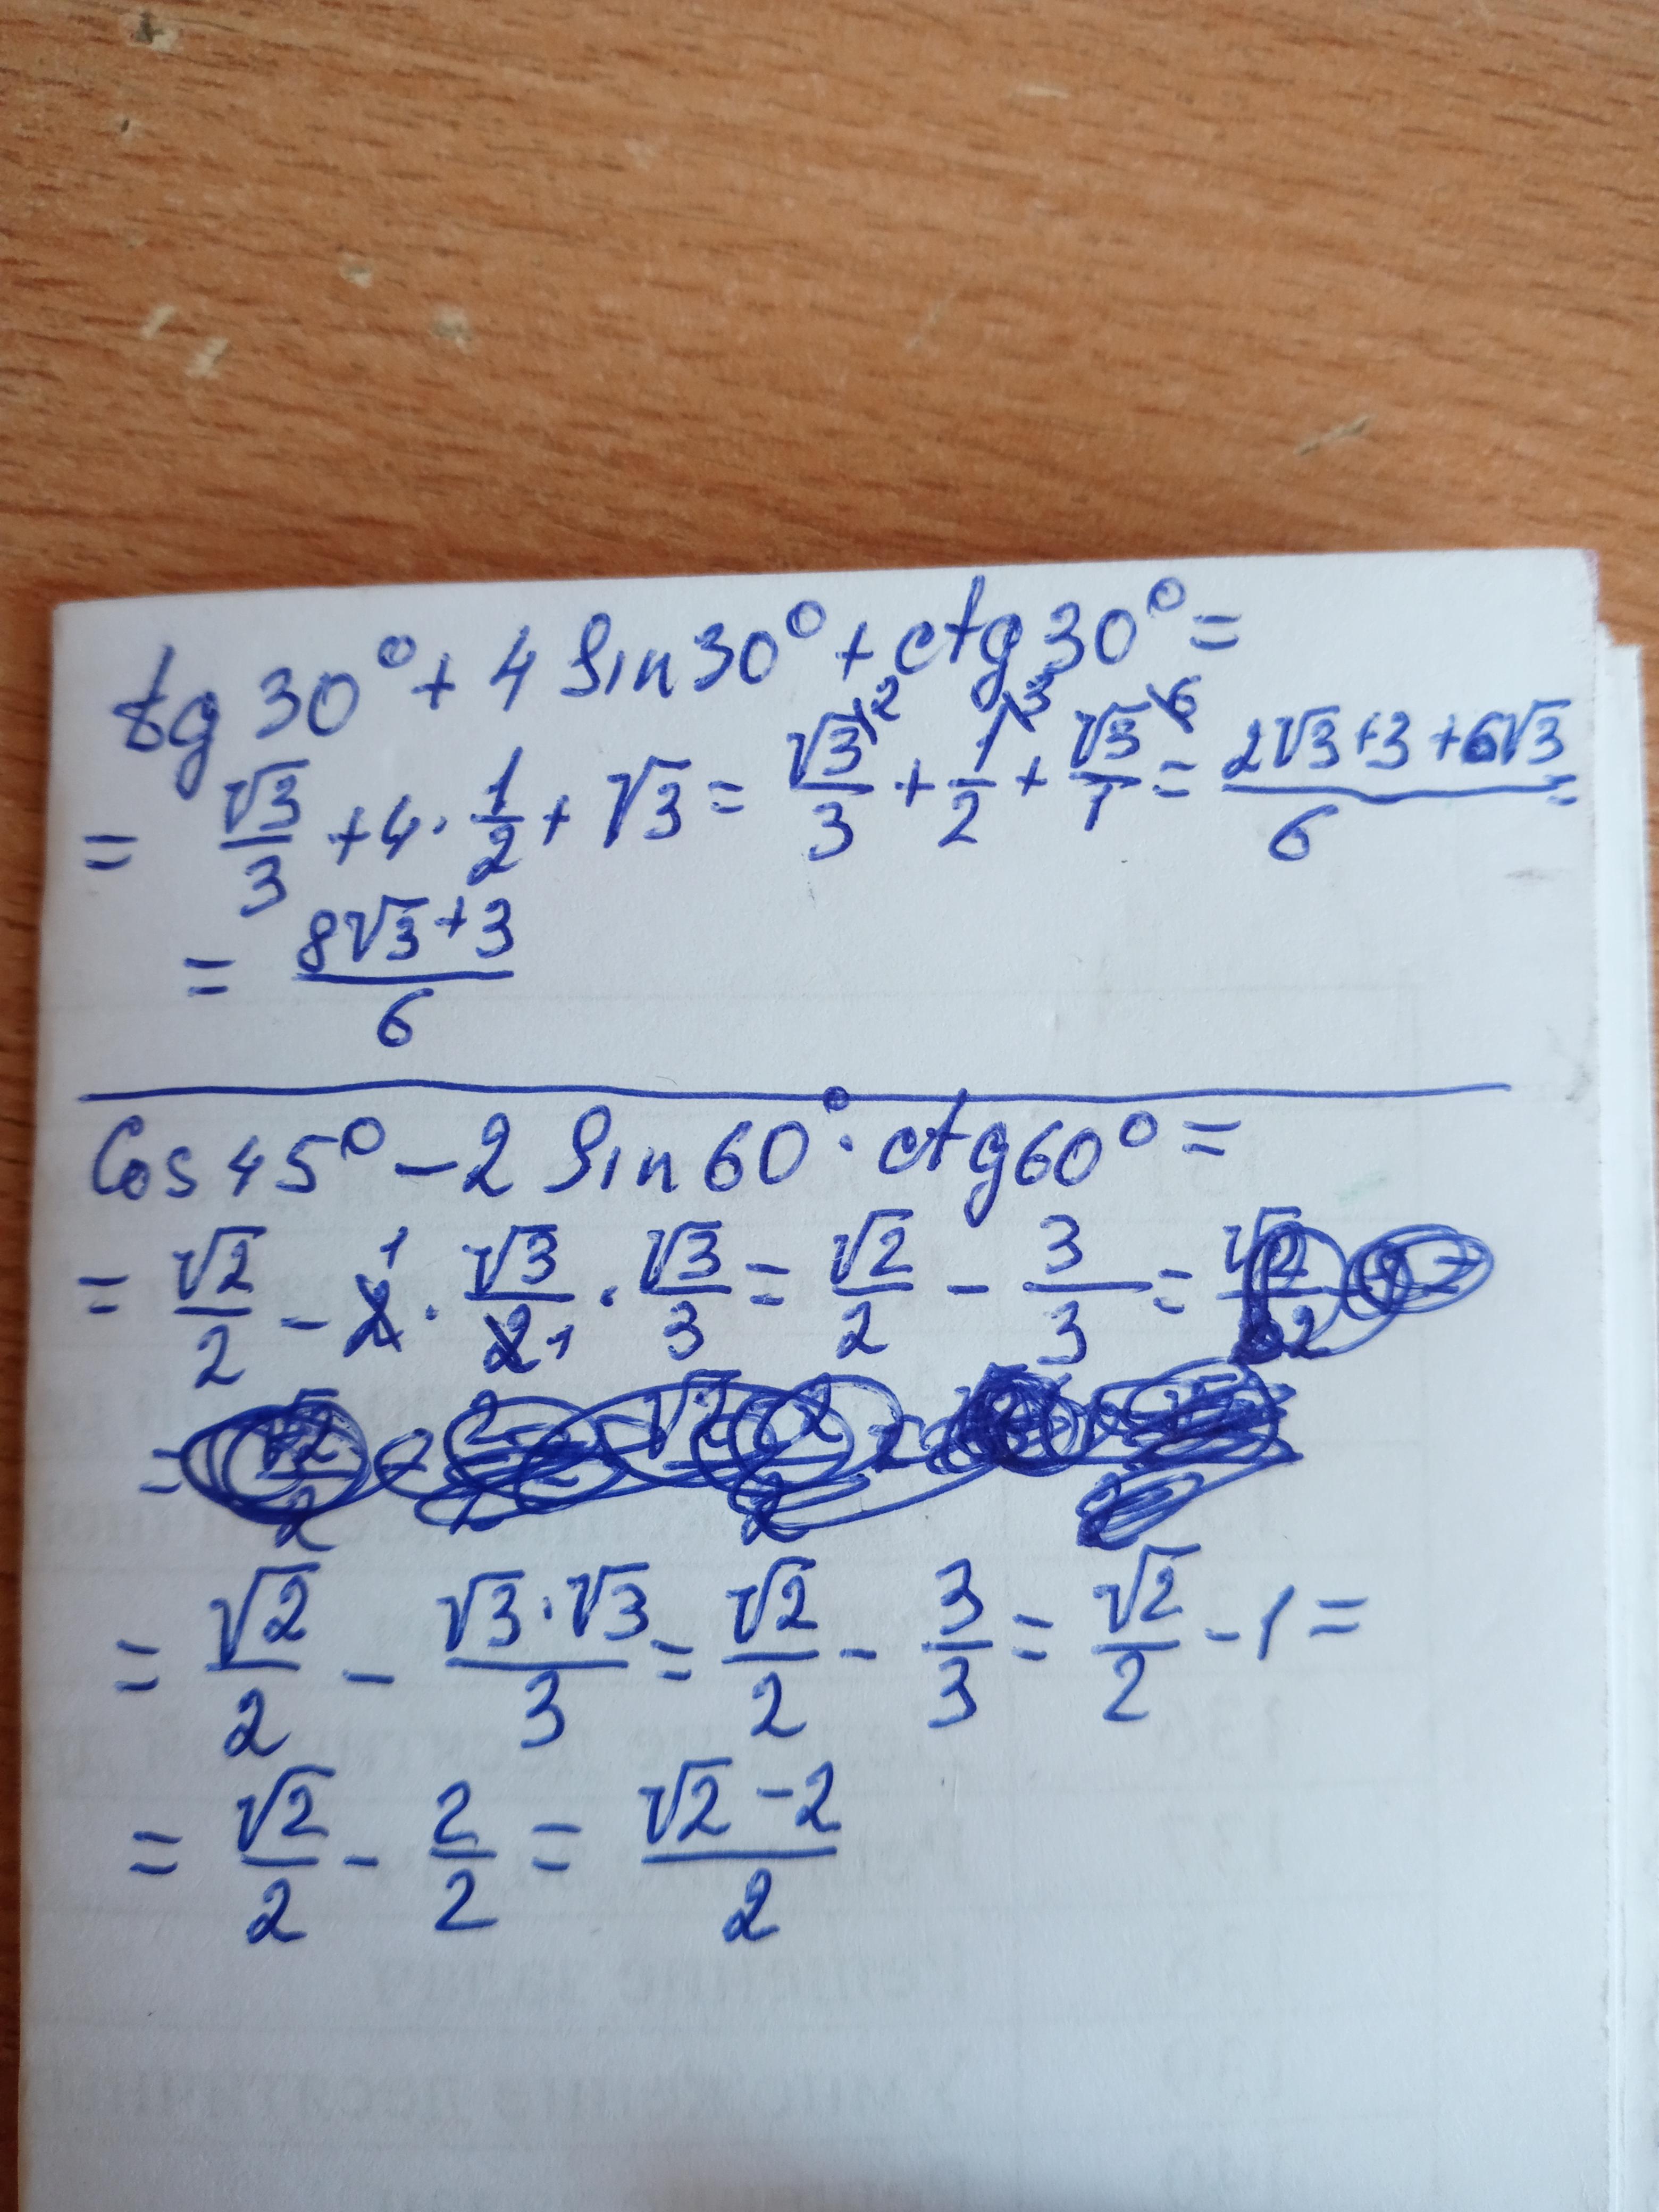 tg 30° + 4 sin 30° + ctg 30° =
= √3/3 + 4 · 1/2 + √3 = √3\2/3 + 1\3/2 + √3\6/1 = (2√3 + 3 + 6√3)/6 =
= (8√3 + 3)/6
Cos 45° - 2 sin 60° · ctg 60° =
= √2/2 - 2 1 · √3/2 1 · √3/3 = √2/2 - 3/3 =
= √2/2 - (√3 · √3)/3 = √2/2 - 3/3 = √2/2 - 1 =
= √2/2 - 2/2 = (√2 - 2)/2